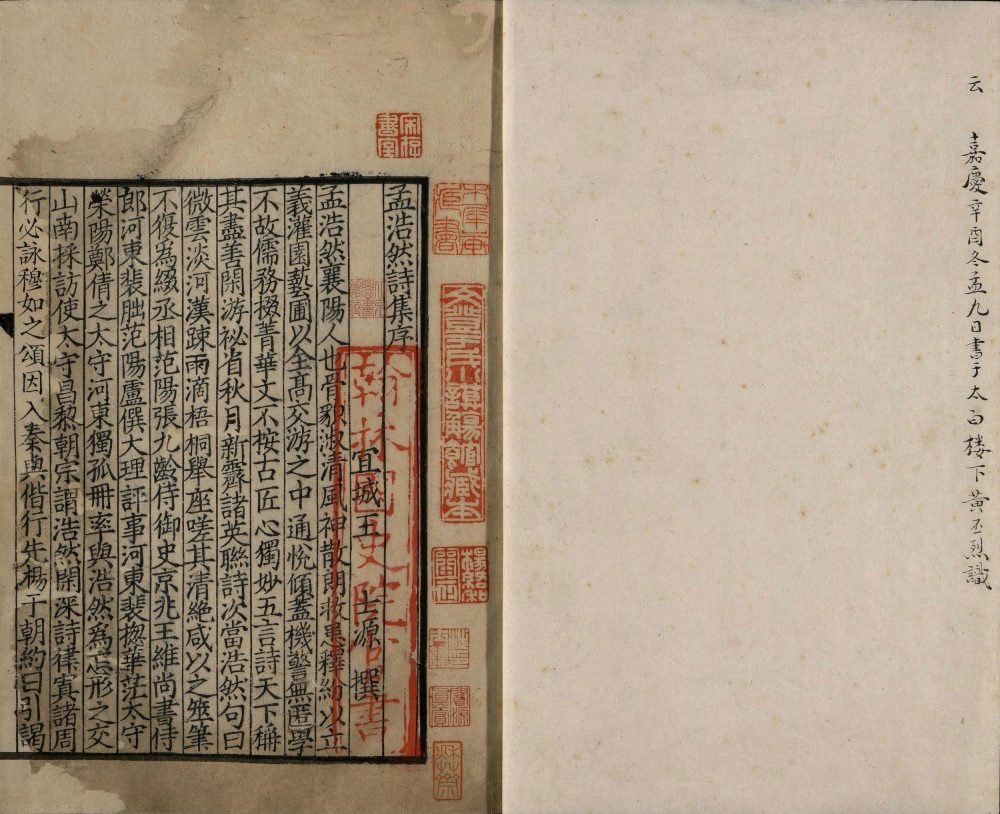 云
嘉慶辛酉冬孟九日書于太白楼下黃丕烈識
宋存書室
文登于氏小謨觴館藏本
翰林國史院官書
孟浩然詩集序
宜城王士源撰
孟浩然襄陽人也骨貌淑清風神散朗救患釋紛以立
義灌園藝圃以全高交游之中通悅傾蓋機警無匿學
不攷儒務掇菁華文不桉古匠心獨妙五言詩天下稱
其盡善閑游祕省秋月新霽諸英聯詩次當浩然句曰
微雲淡河漢疎雨滴梧桐舉座嗟其清絕咸以之筆
不復爲綴丞相范陽張九齡侍御史京兆王維尚書侍
郎河東裴朏范陽盧僎大理評事河東裴揔華茫太守
滎陽鄭倩之太守河東獨孤冊率與浩然爲忘形之交
山南採訪使太守昌黎朝宗謂浩然閑深詩律寘諸周
行必詠穆如之頌因入秦與偕行先楊子朝約日引謁